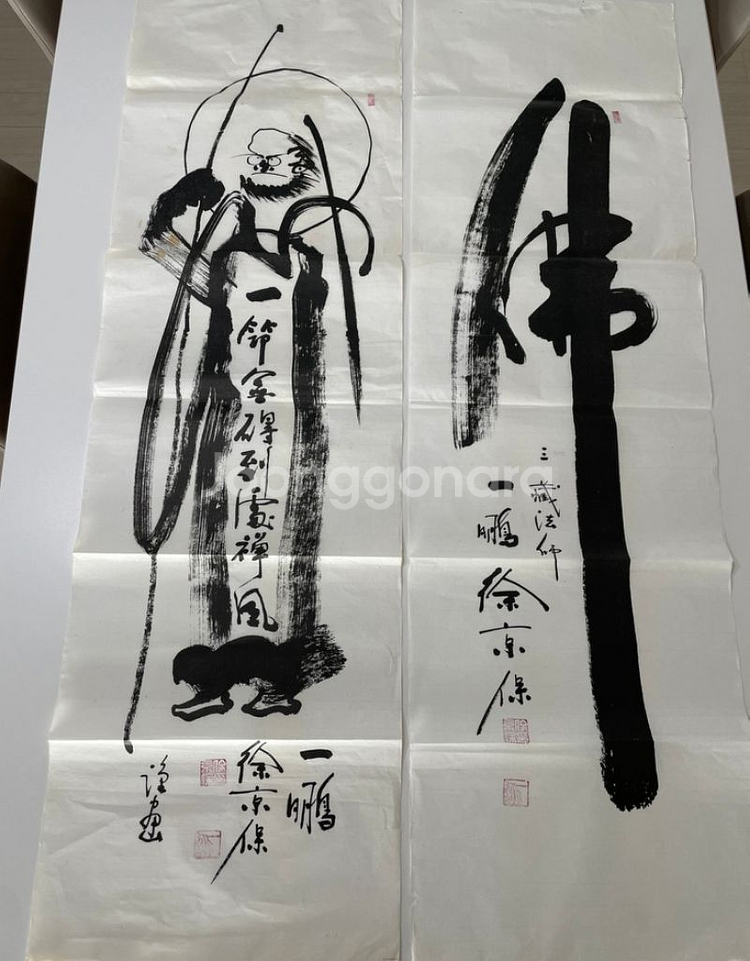 一筇無碍到處禪風
一鵬
徐京保
謹畫
佛
三藏法師
一鵬 徐京保
Joonggonara